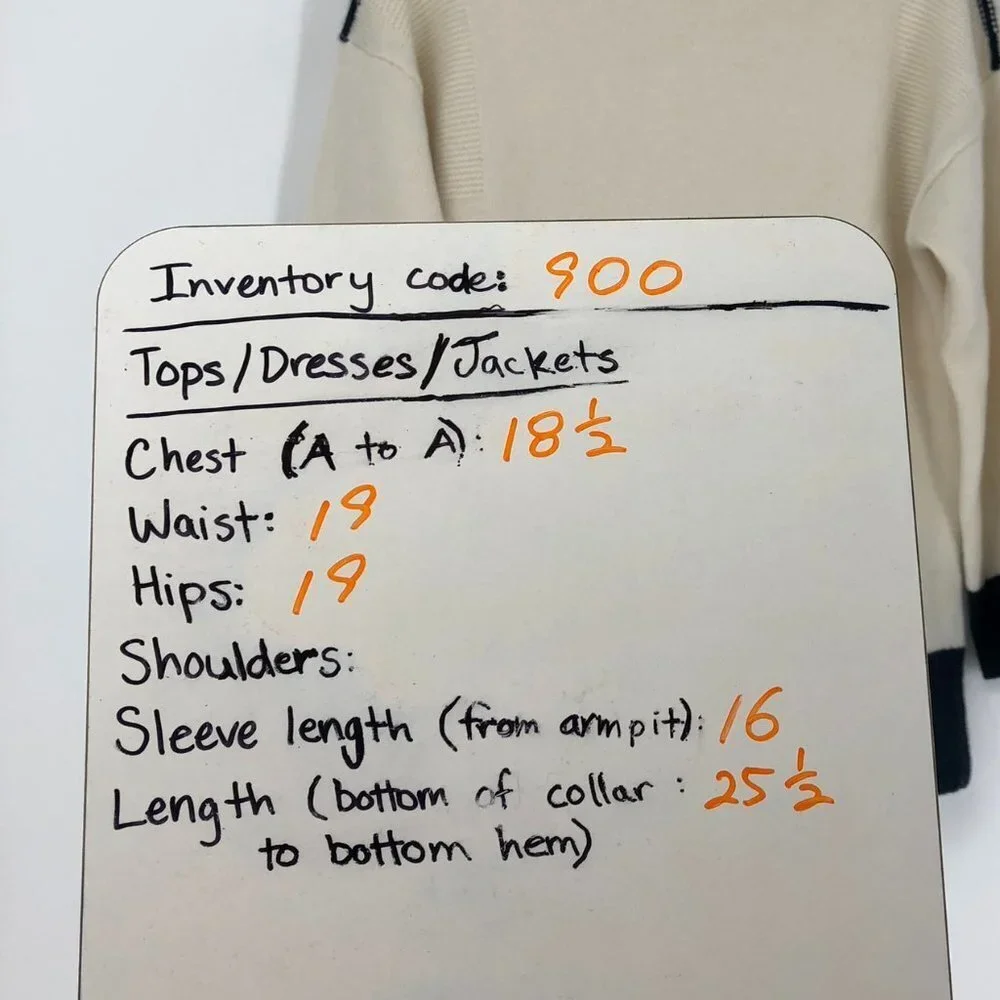 Inventory code: 900
Tops/Dresses/Jackets
Chest (A to A): 18 1/2
Waist: 19
Hips: 19
Shoulders:
Sleeve length (from armpit): 16
Length (bottom of collar : 25 1/2
to bottom hem)